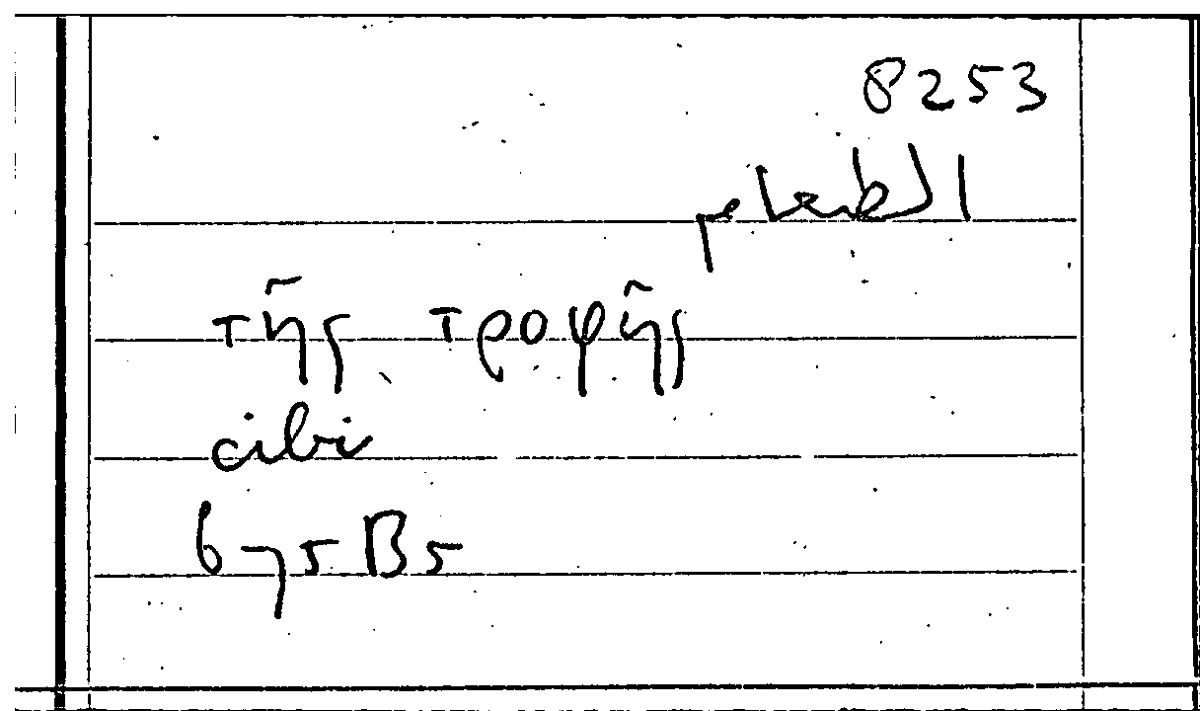 8253
τῆς τροφῆς
cibi
675B5